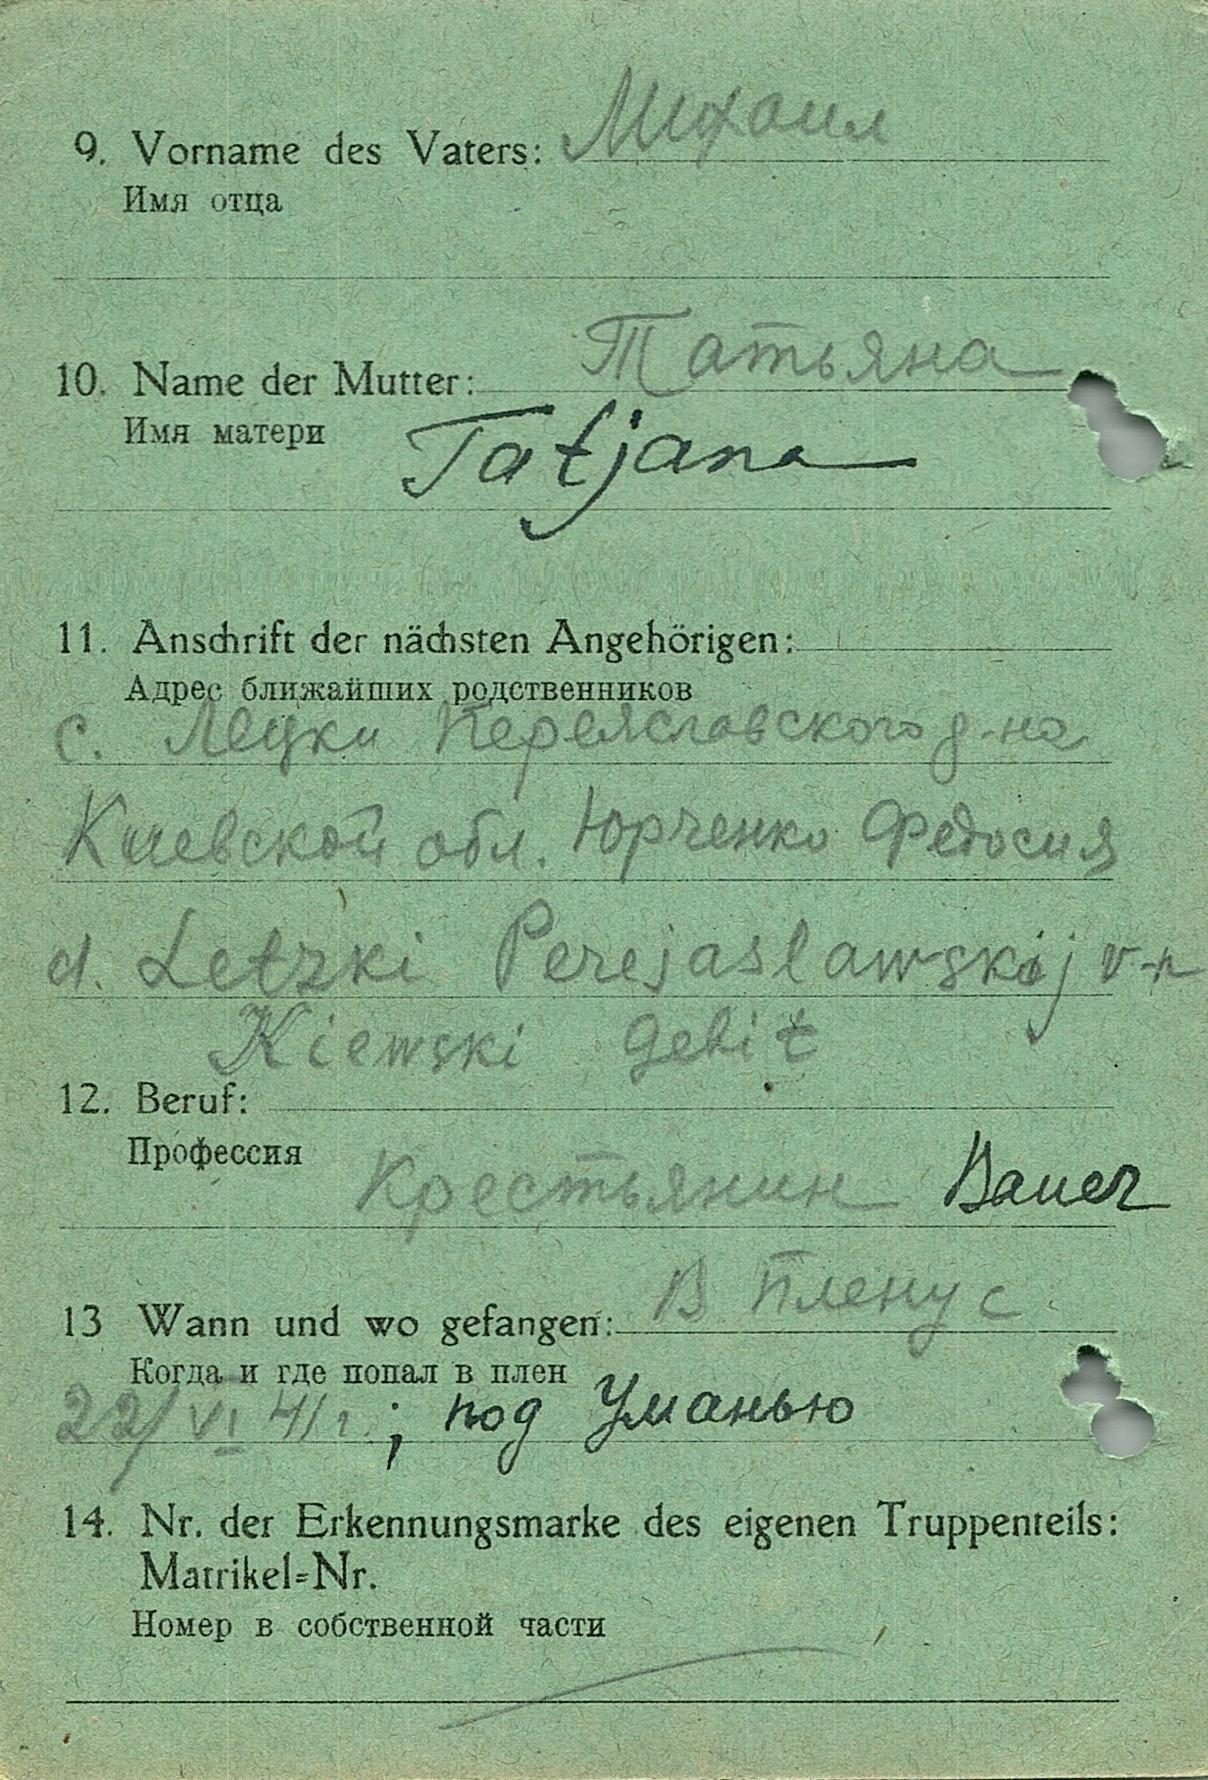 9. Vorname des Vaters: Михаил
Имя отца
10. Name der Mutter: Татьяна
Имя матери
Tatjana
11. Anschrift der nächsten Angehörigen:
Адрес ближайших родственников
с. Лецки Переяславского р-на
Киевской обл. Юрченко Федосия
d. Letzki Perejaslawskij r-n
Kiewski Gebit
12. Beruf:
Профессия
Крестьянин Bauer
В плену с
13 Wann und wo gefangen:
Когда и где попал в плен
22/VI 41 г.; под Уманью
14. Nr. der Erkennungsmarke des eigenen Truppenteils:
Matrikel=Nr.
Номер в собственной части